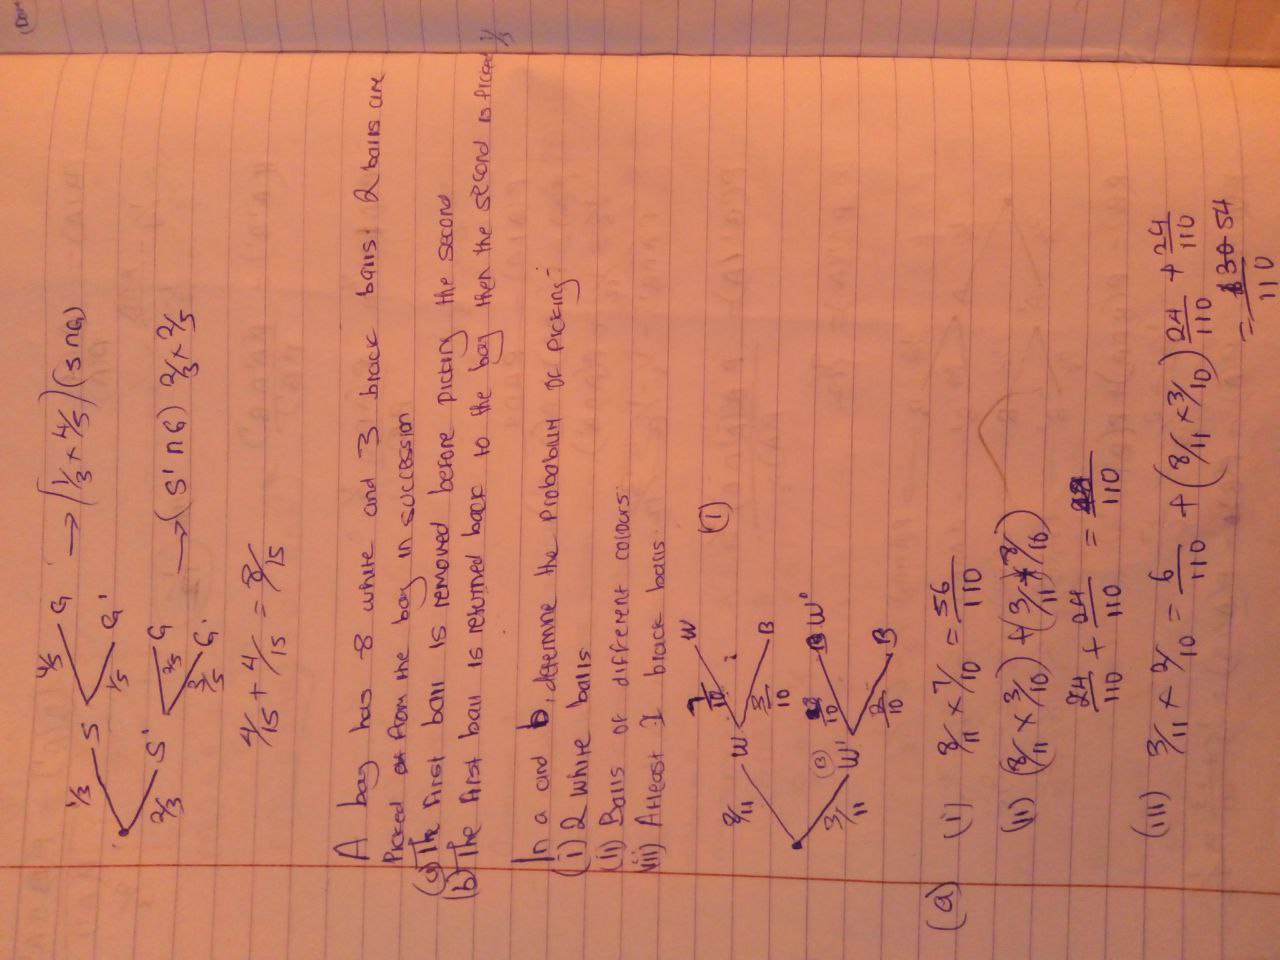 1/3 S 4/5 G → (1/3 × 4/5) (S ∩ G)
1/5 G'
2/3 S' 2/5 G → (S' ∩ G) 2/3 × 2/5
3/5 G'
4/15 + 4/15 = 8/15
A bag has 8 white and 3 black balls. 2 balls are
Picked from the bag in succession
(a) The first ball is removed before picking the second
(b) The first ball is returned back to the bag then the second is picked
In a and b, determine the Probability of Picking:-
(i) 2 White balls
(ii) Balls of different colours.
(iii) Atleast 1 black balls.
8/11 W 7/10 W (1)
3/10 B
3/11 (B) W' 8/10 W'
2/10 B
(a) (i) 8/11 × 7/10 = 56/110
(ii) (8/11 × 3/10) + (3/11 × 8/10)
24/110 + 24/110 = 48/110
(iii) 3/11 × 2/10 = 6/110 + (8/11 × 3/10) 24/110 + 24/110
= 54/110